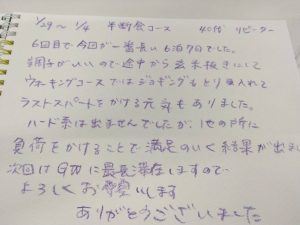 12/29 ～ 1/4 半断食コース 40代 リピーター
6回目で今回が一番長い6泊7日でした。
調子がいいので途中から玄米抜きにして
ウォーキングコースではジョギングもとり入れて
ラストスパートをかける元気もありました。
ハードな は出ませんでしたが、他の所に
負荷をかけることで満足のいく結果が出ま
次回はGWに最長滞在しますので
よろしくお願いします
ありがとうございました